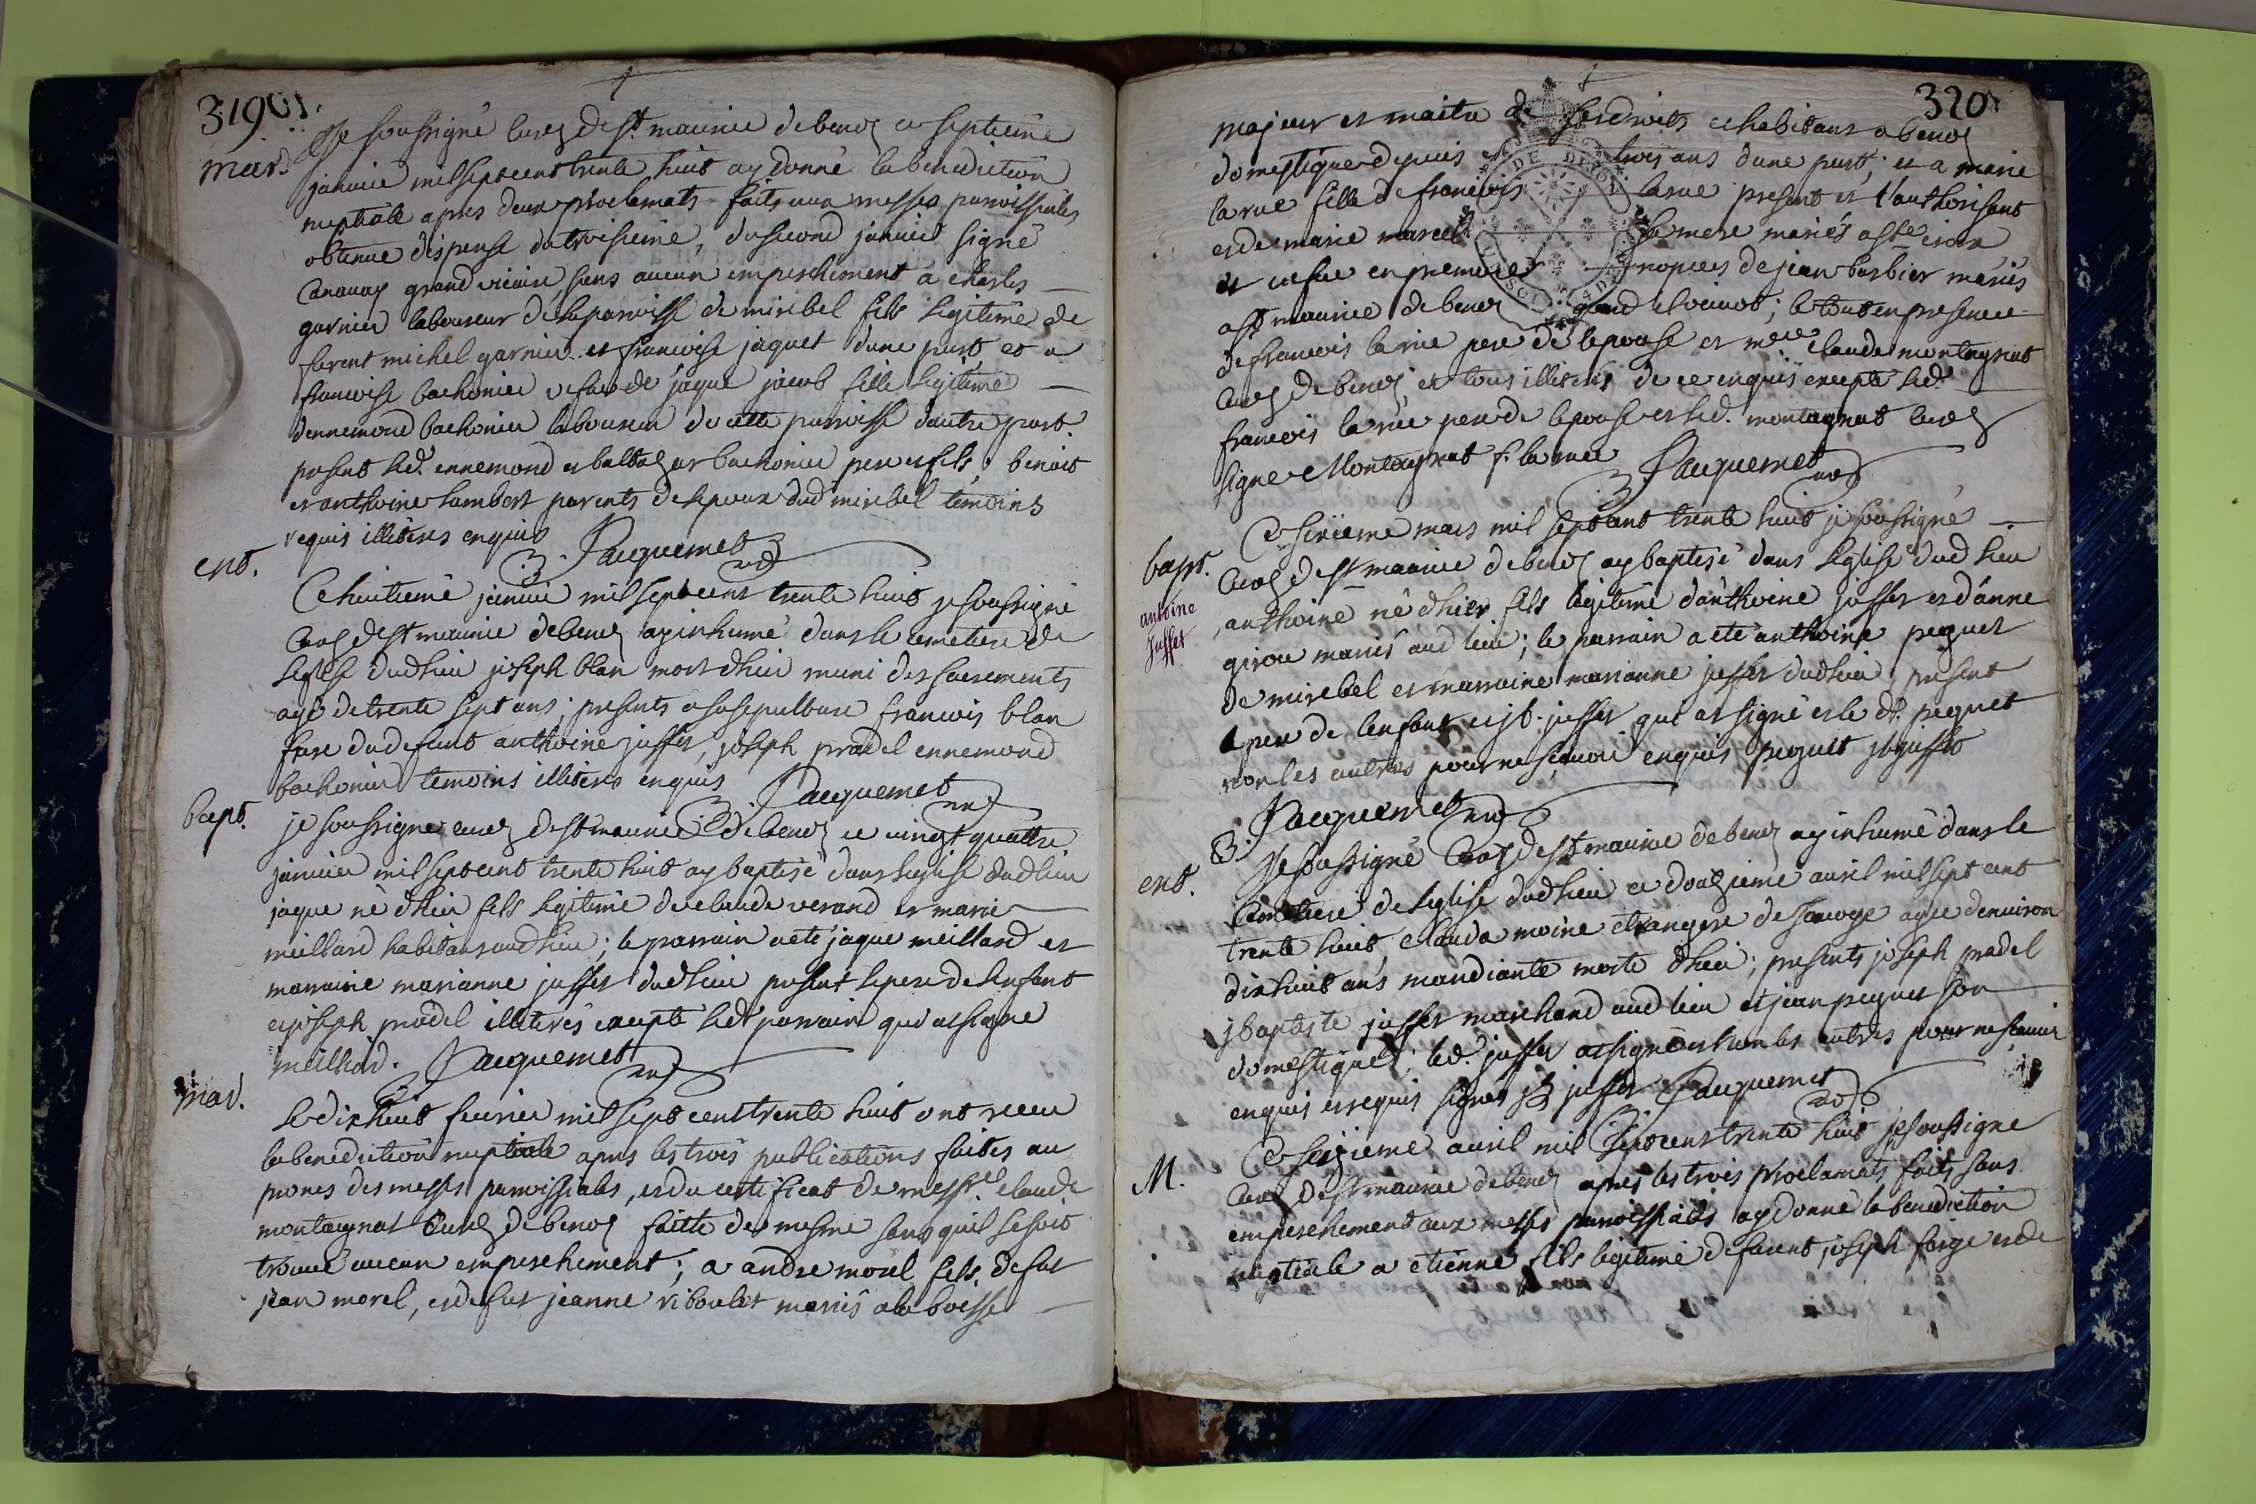 319
mar.
Je soussigné curé de st maurice de benoz ce septieme
janvier mil sept cent trente huit ay donné la benediction
nuptiale apres deux proclamats faits aux messes paroissiales
obtenue dispense du troisieme, du second janvier signé
grand vicaire, sans aucun empeschement a charles
garnier laboureur de la paroisse de miribel fils legitime de
furent michel garnier et francoise jaquet dune part, et a
francoise bachonier vefue de jaque jacob fille legitime
dennemond bachonier laboureur de cette paroisse dautre part.
present led. ennemond et baltazar bachonier pere et fils, benoit
et anthoine lambert parents de lepoux dud miribel temoins
requis illiteres enquis Jacquemet
ent.
Ce huitieme janvier mil sept cent trente huit je soussigné
curé de st maurice de benoz ay inhumé dans le cemetiere de
leglise dudlieu joseph blan mort dhier muni des sacrements
agé de trente sept ans; presents a sa sepulture francois blan
frere du defunt anthoine juffet, joseph pradel ennemond
bachonier temoins illiteres enquis Jacquemet
bapt.
je soussigné curé de st maurice de benoz ce vingt quattre
janvier mil sept cent trente huit ay baptisé dans leglise dudlieu
jaque né dhier fils legitime de claude verand et marie
meillard habitans aud lieu; le parrain a eté jaque meillard et
marraine marianne juffet dudlieu present le pere de lenfant
et joseph pradel illiteres excepté led parrain qui a signé
meilliard. Jacquemet
mar.
Le dix huit feurier mil sept cent trente huit ont receu
la benediction nuptiale apres les trois publications faites au
prones des messes paroissiales, et du certificat de messre claude
montagnat curé de benoz faitte de mesme sans quil se soit
trouué aucun empeschement; a andre morel fils de fut
jean morel, et de fut jeanne riboulet mariés a la boisse
320
majeur et maitre de ses droits et habitant a benoz
domestique depuis trois ans dune part; et a marie
larue fille de francois larue present et l'authorisant
et de marie marcel sa mere mariés a ste croix
et vefue en premieres nopces de jean barbier mariés
a st maurice de benoz quand il vivoit; le tout en presence
de francois larue pere de lepouse et mere claude montagnat
curé de benoz, et tous illiteres de ce enquis excepté led.
francois larue pere de lepouse et led. montagnat curé
signe Montagnat f. la rue Jacquemet
bapt.
antoine
Juffet
Ce sixieme mars mil sept cent trente huit je soussigné
curé de st maurice de benoz ay baptisé dans leglise dud lieu
anthoine né dhier fils legitime danthoine juffet et danne
girou mariés aud lieu; le parrain a eté anthoine pequet
de miribel et marraine marianne juffet dudlieu present
le pere de lenfant et jb. juffet qui a signé et le dt. pequet
non les autres pour ne sçauoir enquis pequet jb juffet
Jacquemet
ent.
Je soussigné curé de st maurice de benoz ay inhumé dans le
cimetiere de leglise dudlieu ce douzieme auril mil sept cent
trente huit, clauda moine etrangere de sauoye agée denuiron
dix huit ans mandiante morte dhier; presents joseph pradel
jbaptiste juffet marchand aud lieu et jean pequet son
domestique; led. juffet a signé et non les autres pour ne sçauoir
enquis et requis signer jb juffet Jacquemet
M.
Ce seizieme auril mil sept cent trente huit je soussigné
curé de st maurice de benoz apres les trois proclamats faits sans
empeschement aux messes paroissiales ay donné la benediction
nuptiale a etienne fils legitime de furent joseph forge et de